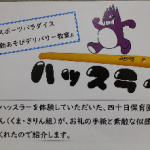 スポーツパラダイス
動あそびデリバリー教室♪
ハッスラ
ハッスラーを体験していただいた、四十日保育園
ん(くま・きりん組)が、お礼の手紙と素敵な似顔
くれたので紹介します。